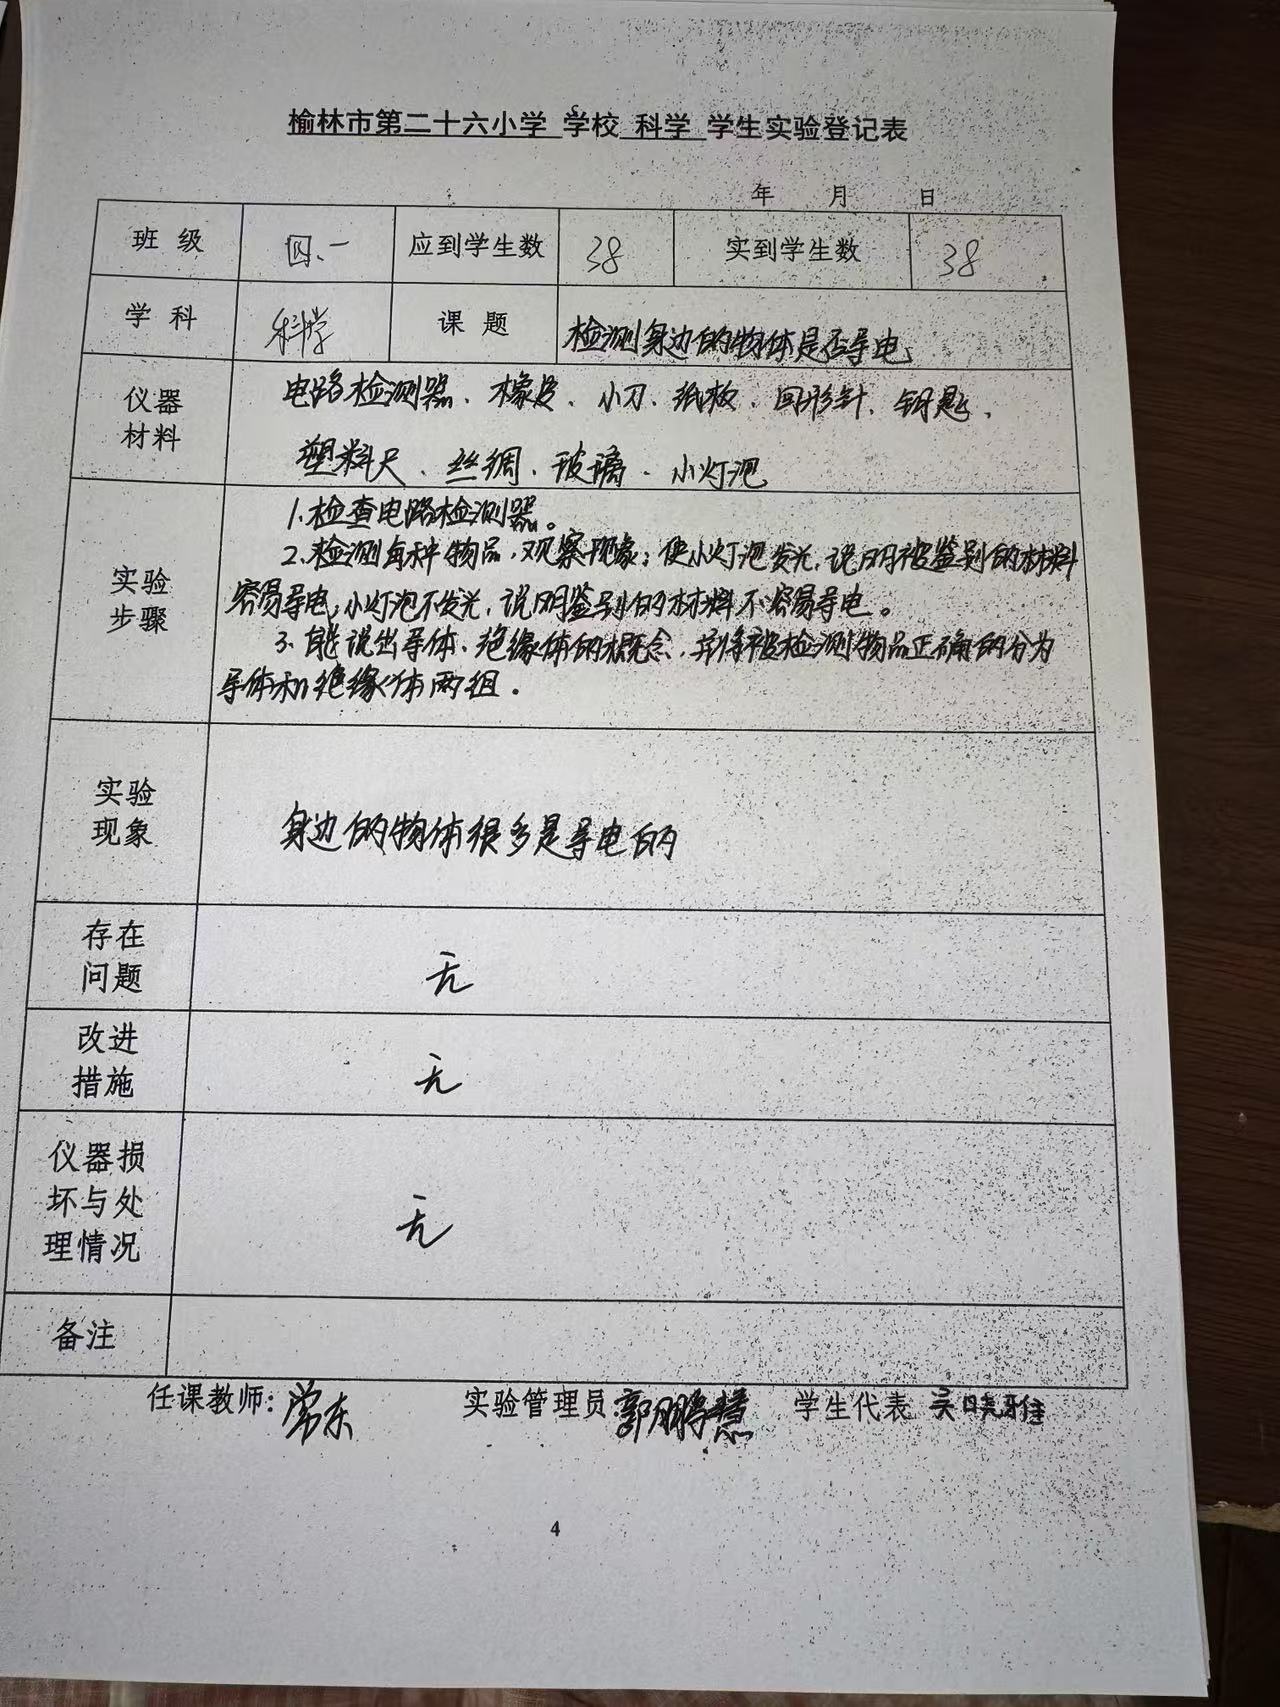 榆林市第二十六小学 学校 科学 学生实验登记表
年 月 日
班 级 四.一 应到学生数 38 实到学生数 38
学 科 科学 课 题 检测身边的物体是否导电
仪器
材料
电路检测器、橡皮、小刀、纸板、回形针、钥匙、
塑料尺、丝绸、玻璃、小灯泡
实验
步骤
1.检查电路检测器。
2.检测每种物品,观察现象;使小灯泡发光,说明被鉴别的材料
容易导电,小灯泡不发光,说明鉴别的材料不容易导电。
3.能说出导体、绝缘体的概念,并将被检测物品正确的分为
导体和绝缘体两组.
实验
现象
身边的物体很多是导电的
存在
问题
无
改进
措施
无
仪器损
坏与处
理情况
无
备注
任课教师:常东 实验管理员:郭鹏慧 学生代表 吴晓雅
4